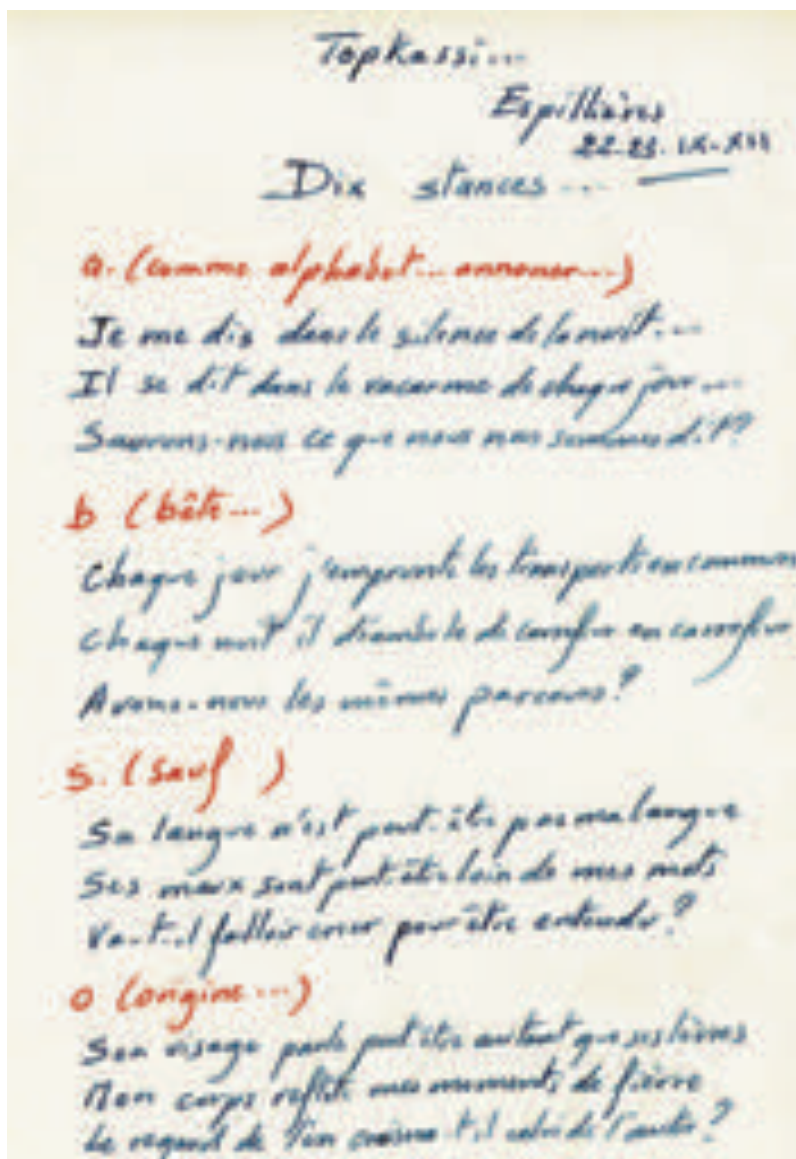 Topkassi...
Espillières
22-23-IX-XII
Dix stances...
a. (comme alphabet... annoner...)
Je me dis dans le silence de la nuit...
Il se dit dans le vacarme de chaque jour...
Saurons-nous ce que nous nous sommes dit?
b (bête...)
Chaque jour j'emprunte les transports en commun
Chaque nuit il déambule de carrefour en carrefour
Avons-nous les mêmes parcours?
s. (sauf )
Sa langue n'est peut-être pas ma langue
Ses maux sont peut-être loin de mes mots
Va-t-il falloir crier pour être entendu?
o (origine...)
Son visage parle peut être autant que ses lèvres
Mon corps reflète mes moments de fièvre
Le regard de l'un croise-t-il celui de l'autre?